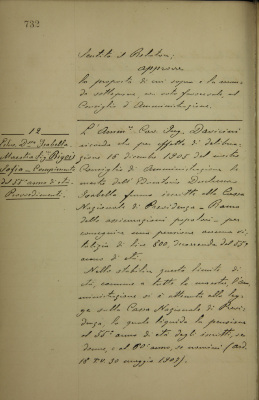 732
Sentito il Relatore;
approva
la proposta di cui sopra e la manda
sottoporre con voto favorevole al
Consiglio d'Amministrazione.
12
Isabella
Maestra Sig.na
Sofia - Compimento
del 55° anno di età.
Provvedimenti.
L' Cav. Ing.
ricorda che per effetto di deliberazione
15 dicembre 1905 del nostro
Consiglio di Amministrazione la
maestra dell'
Isabella fu iscritta alla Cassa
Nazionale di Previdenza - Ramo
delle assicurazioni popolari - per
conseguire una pensione annua vitalizia
di lire 800, decorrenda dal 55°
anno di età.
Nello stabilire questo limite di
età, comune a tutte le maestre, l'Amministrazione
si è attenuta alla legge
sulla Cassa Nazionale di Previdenza,
la quale liquida la pensione
al 55° anno di età degli iscritti, se
donne, e al 60° anno, se uomini (art.
30 maggio